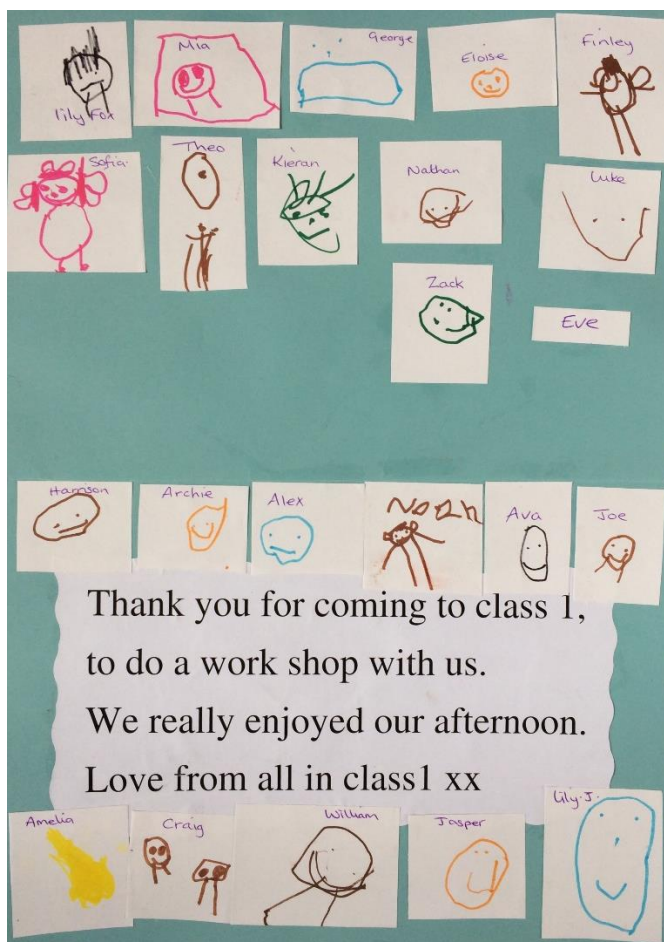 Mia George Eloise Finley
lily Fox
Sofia. Theo Kieran Nathan Luke
Zack
Eve
Harrison Archie Alex Noah Ava Joe
Thank you for coming to class 1,
to do a work shop with us.
We really enjoyed our afternoon.
Love from all in class1 xx
Amelia Craig William Jasper Lily.J.